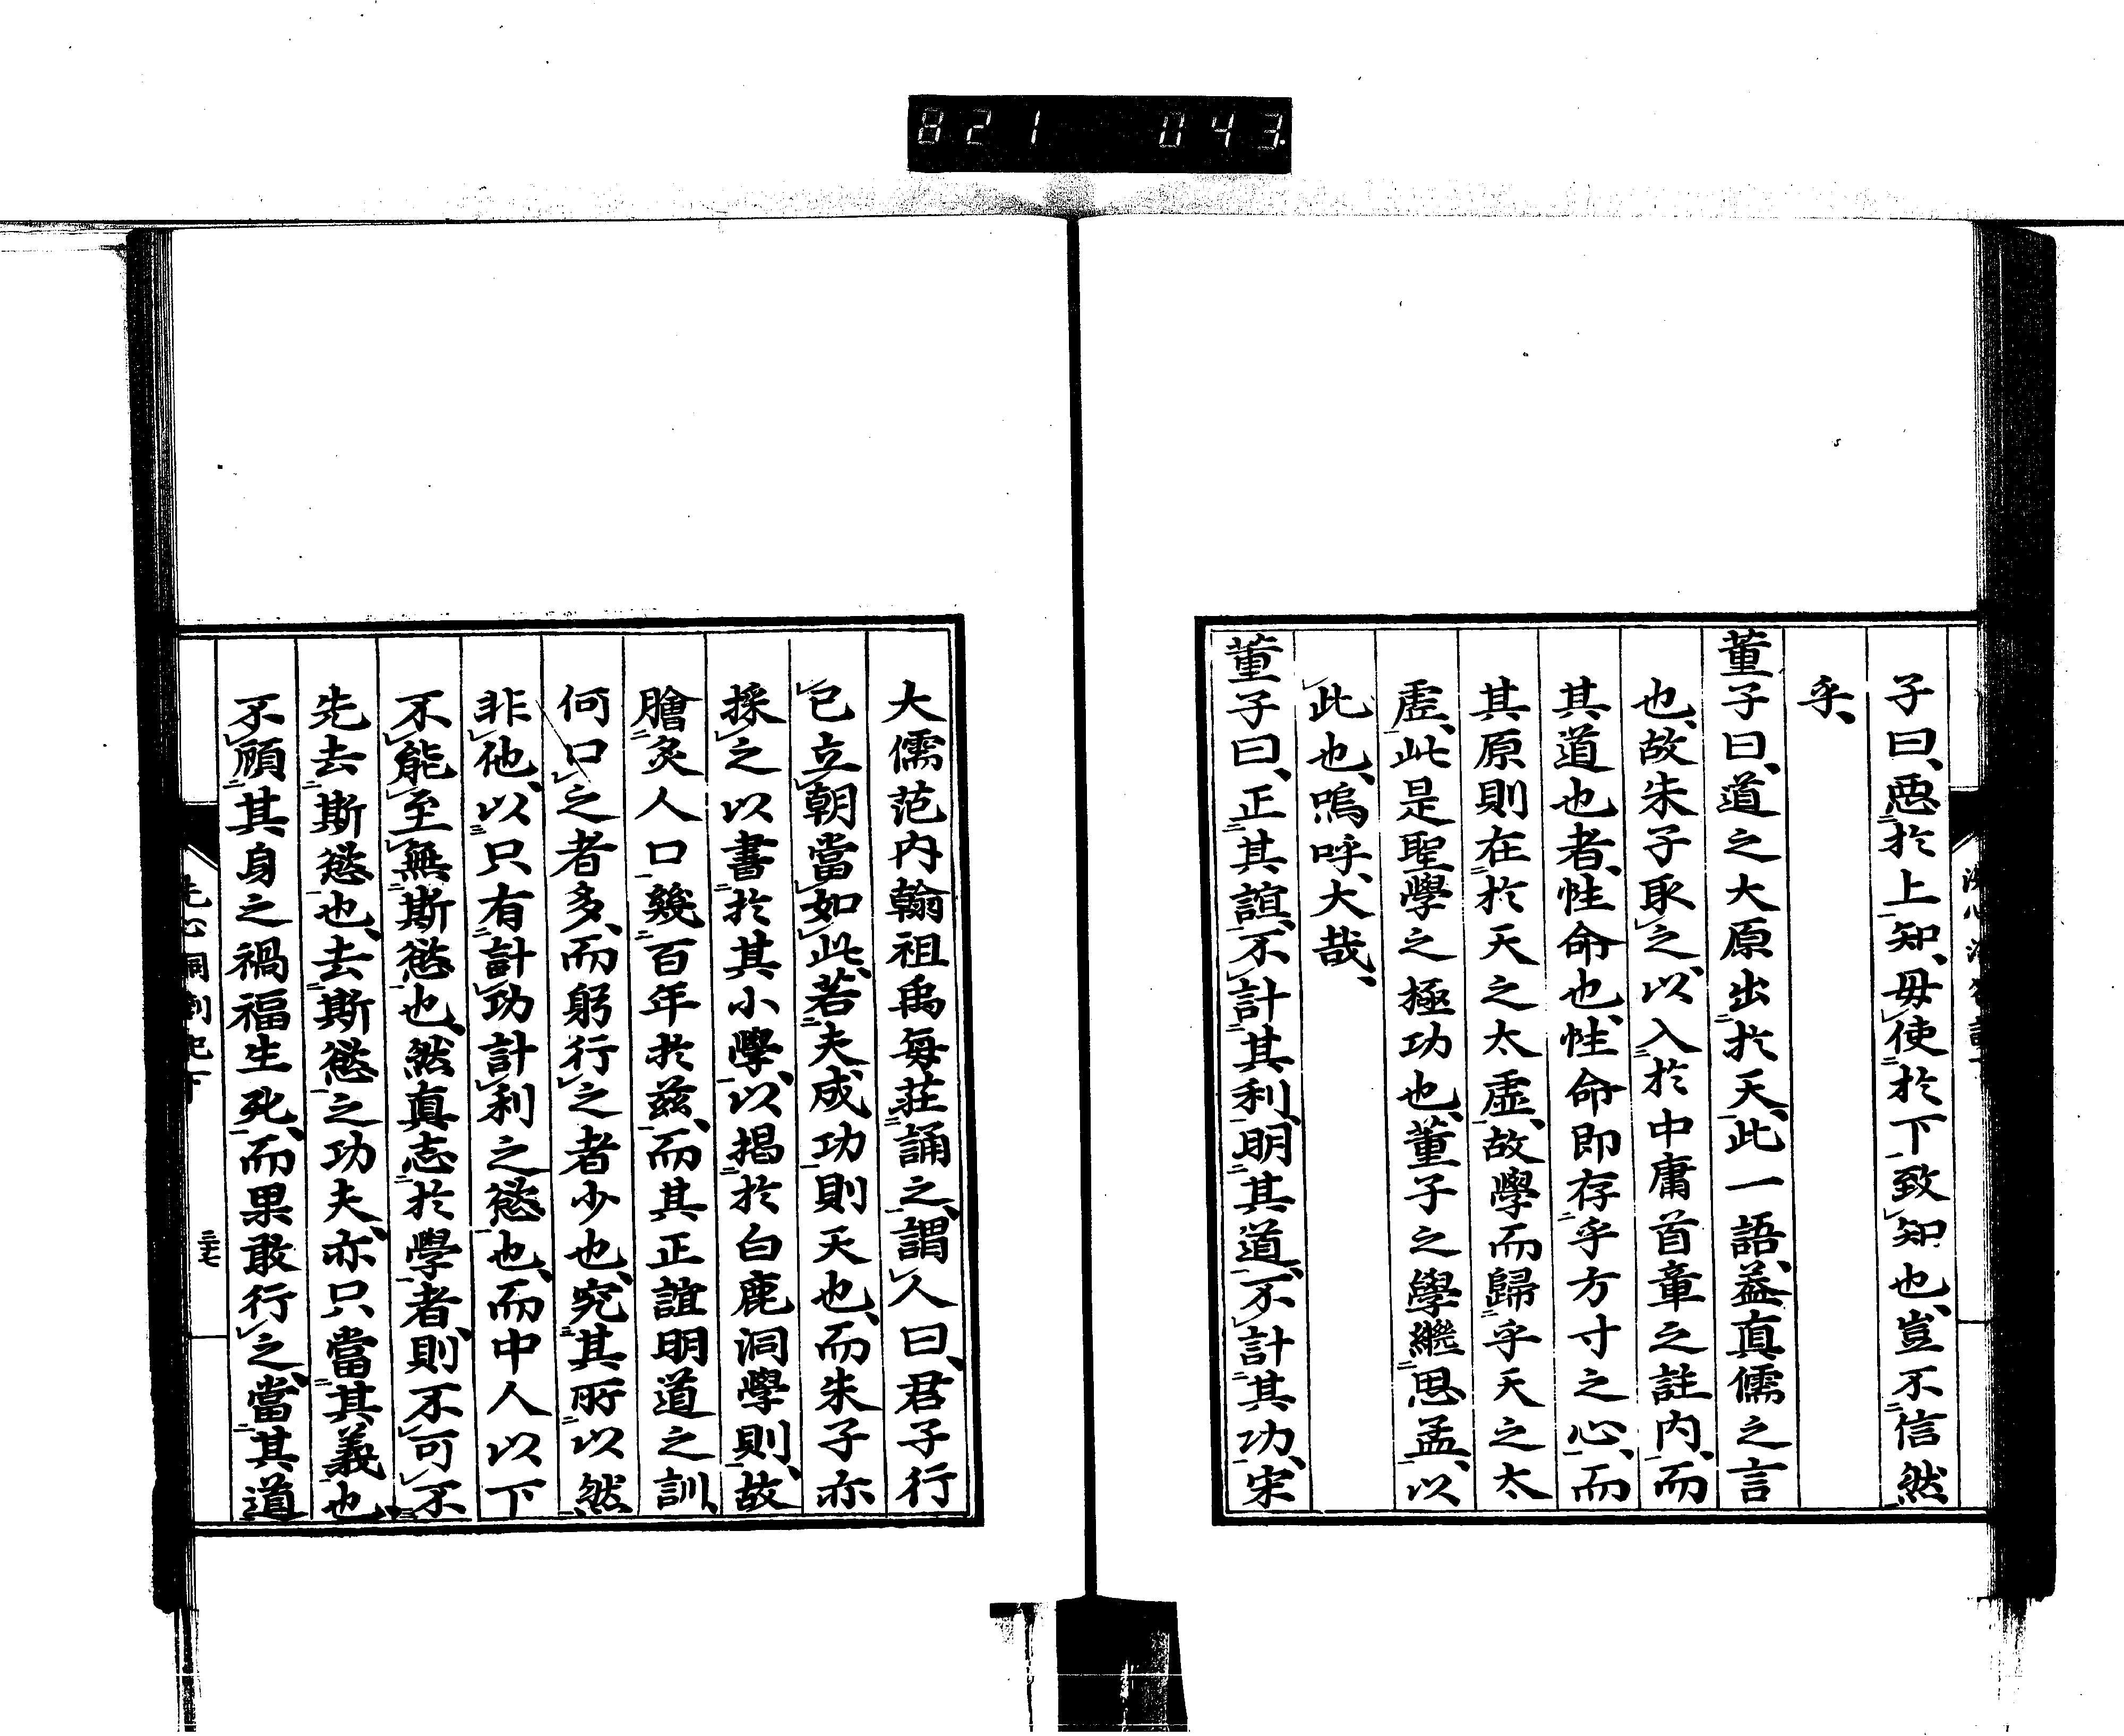 821 043
子曰、惡於上知、毋使於下致知也、豈不信然
乎、
董子曰、道之大原出於天、此一語、蓋真儒之言
也、故朱子取之、以入於中庸首章之註内、而
其道也者、性命也、性命即存乎方寸之心、而
其原則在於天之太虛、故學而歸乎天之太
虛、此是聖學之極功也、董子之學繼思孟、以
此也、嗚呼、大哉、
董子曰、正其誼、不計其利、明其道、不計其功、宋
大儒范内翰祖禹每莊誦之、謂人曰、君子行
已立朝當如此、若夫成功則天也、而朱子亦
採之以書於其小學、以揭於白鹿洞學則、故
膾炙人口幾百年於茲、而其正誼明道之訓、
何口之者多、而躬行之者少也、究其所以然、
非他、以只有計功計利之慾也、而中人以下
不能至無斯慾也、然真志於學者、則不可不
先去斯慾也、去斯慾之功夫、亦只當其義也
不顧其身之禍福生死、而果敢行之、當其道
二十七